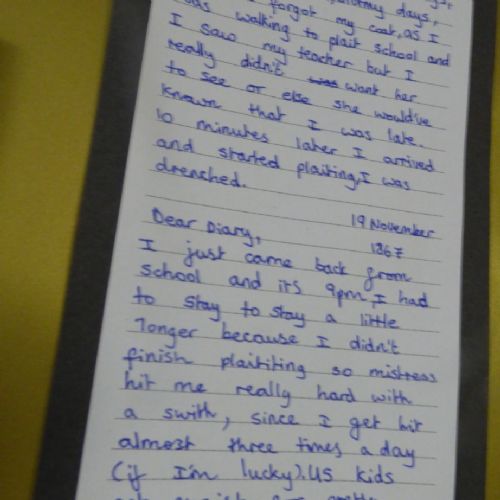 stormy days,
forgot my coat, as I
was walking to plait school and
I saw my teacher but I
really didn't was want her
to see or else she would've
known that I was late.
10 minutes later I arrived
and started plaiting, I was
drenched.
19 November
Dear Diary,
1867
I just came back from
school and its 9pm, I had
to stay to stay a little
longer because I didn't
finish plaititing so mistress
hit me really hard with
a swith, since I get hit
almost three times a day
(if I'm lucky). US kids